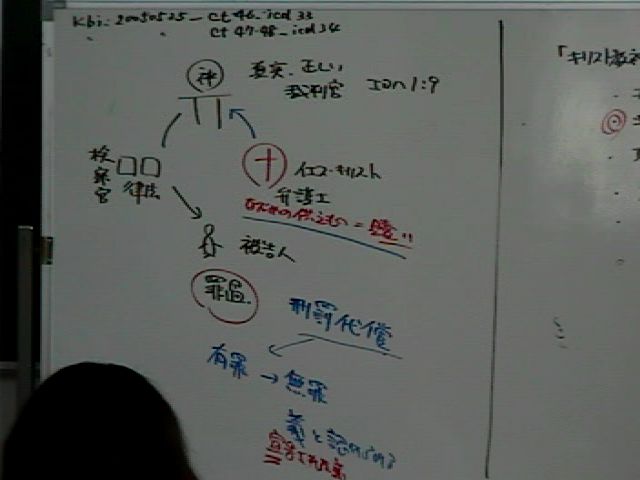 Kbi. 20050525_ Ct 46_icd 33
〃 〃 Ct 47-48_icd 34
神
真実. 正しい
裁判官 IJon 1:9
検察官
律法
イエス・キリスト
弁護士
なだめの供えもの =
被告人
罪過
刑罰代償
有罪 → 無罪
義と認められる
「キリスト